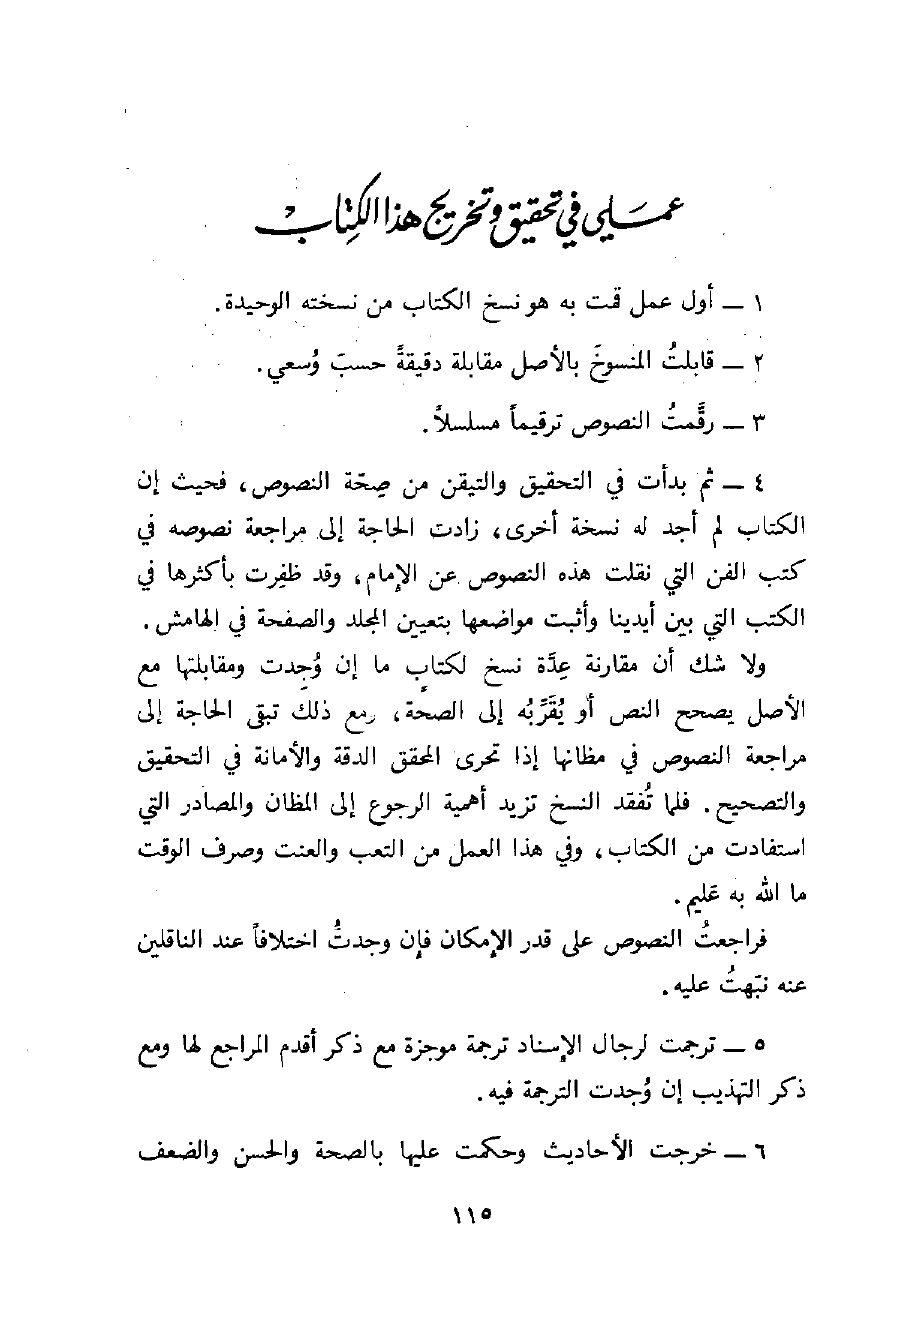 عملي في تحقيق وتخريج هذا الكتاب
١ ــ أول عمل قمت به هو نسخ الكتاب من نسخته الوحيدة.
٢ ــ قابلتُ المنسوخَ بالأصل مقابلة دقيقةً حسبَ وُسعي.
٣ ــ رقَّمتُ النصوص ترقيماً مسلسلاً.
٤ ــ ثم بدأت في التحقيق والتيقن من صِحّة النصوص، فحيث إن
الكتاب لم أجد له نسخة أخرى، زادت الحاجة إلى مراجعة نصوصه في
كتب الفن التي نقلت هذه النصوص عن الإمام، وقد ظفرت بأكثرها في
الكتب التي بين أيدينا وأثبت مواضعها بتعيين المجلد والصفحة في الهامش.
ولا شك أن مقارنة عِدَّة نسخ لكتابٍ ما إن وُجدت ومقابلتها مع
الأصل يصحح النص أو يُقَرِّبُه إلى الصحة، ومع ذلك تبقى الحاجة إلى
مراجعة النصوص في مظانها إذا تحرى المحقق الدقة والأمانة في التحقيق
والتصحيح. فلما تُفقد النسخ تزيد أهمية الرجوع إلى المظان والمصادر التي
استفادت من الكتاب، وفي هذا العمل من التعب والعنت وصرف الوقت
ما الله به عَليم.
فراجعتُ النصوص على قدر الإمكان فإن وجدتُ اختلافاً عند الناقلين
عنه نبّهتُ عليه.
٥ ــ ترجمت لرجال الإسناد ترجمة موجزة مع ذكر أقدم المراجع لها ومع
ذكر التهذيب إن وُجدت الترجمة فيه.
٦ ــ خرجت الأحاديث وحكمت عليها بالصحة والحسن والضعف
١١٥